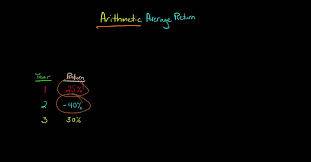 Arithmetic Average Return
Year Return
1 25%
2 -40%
3 30%